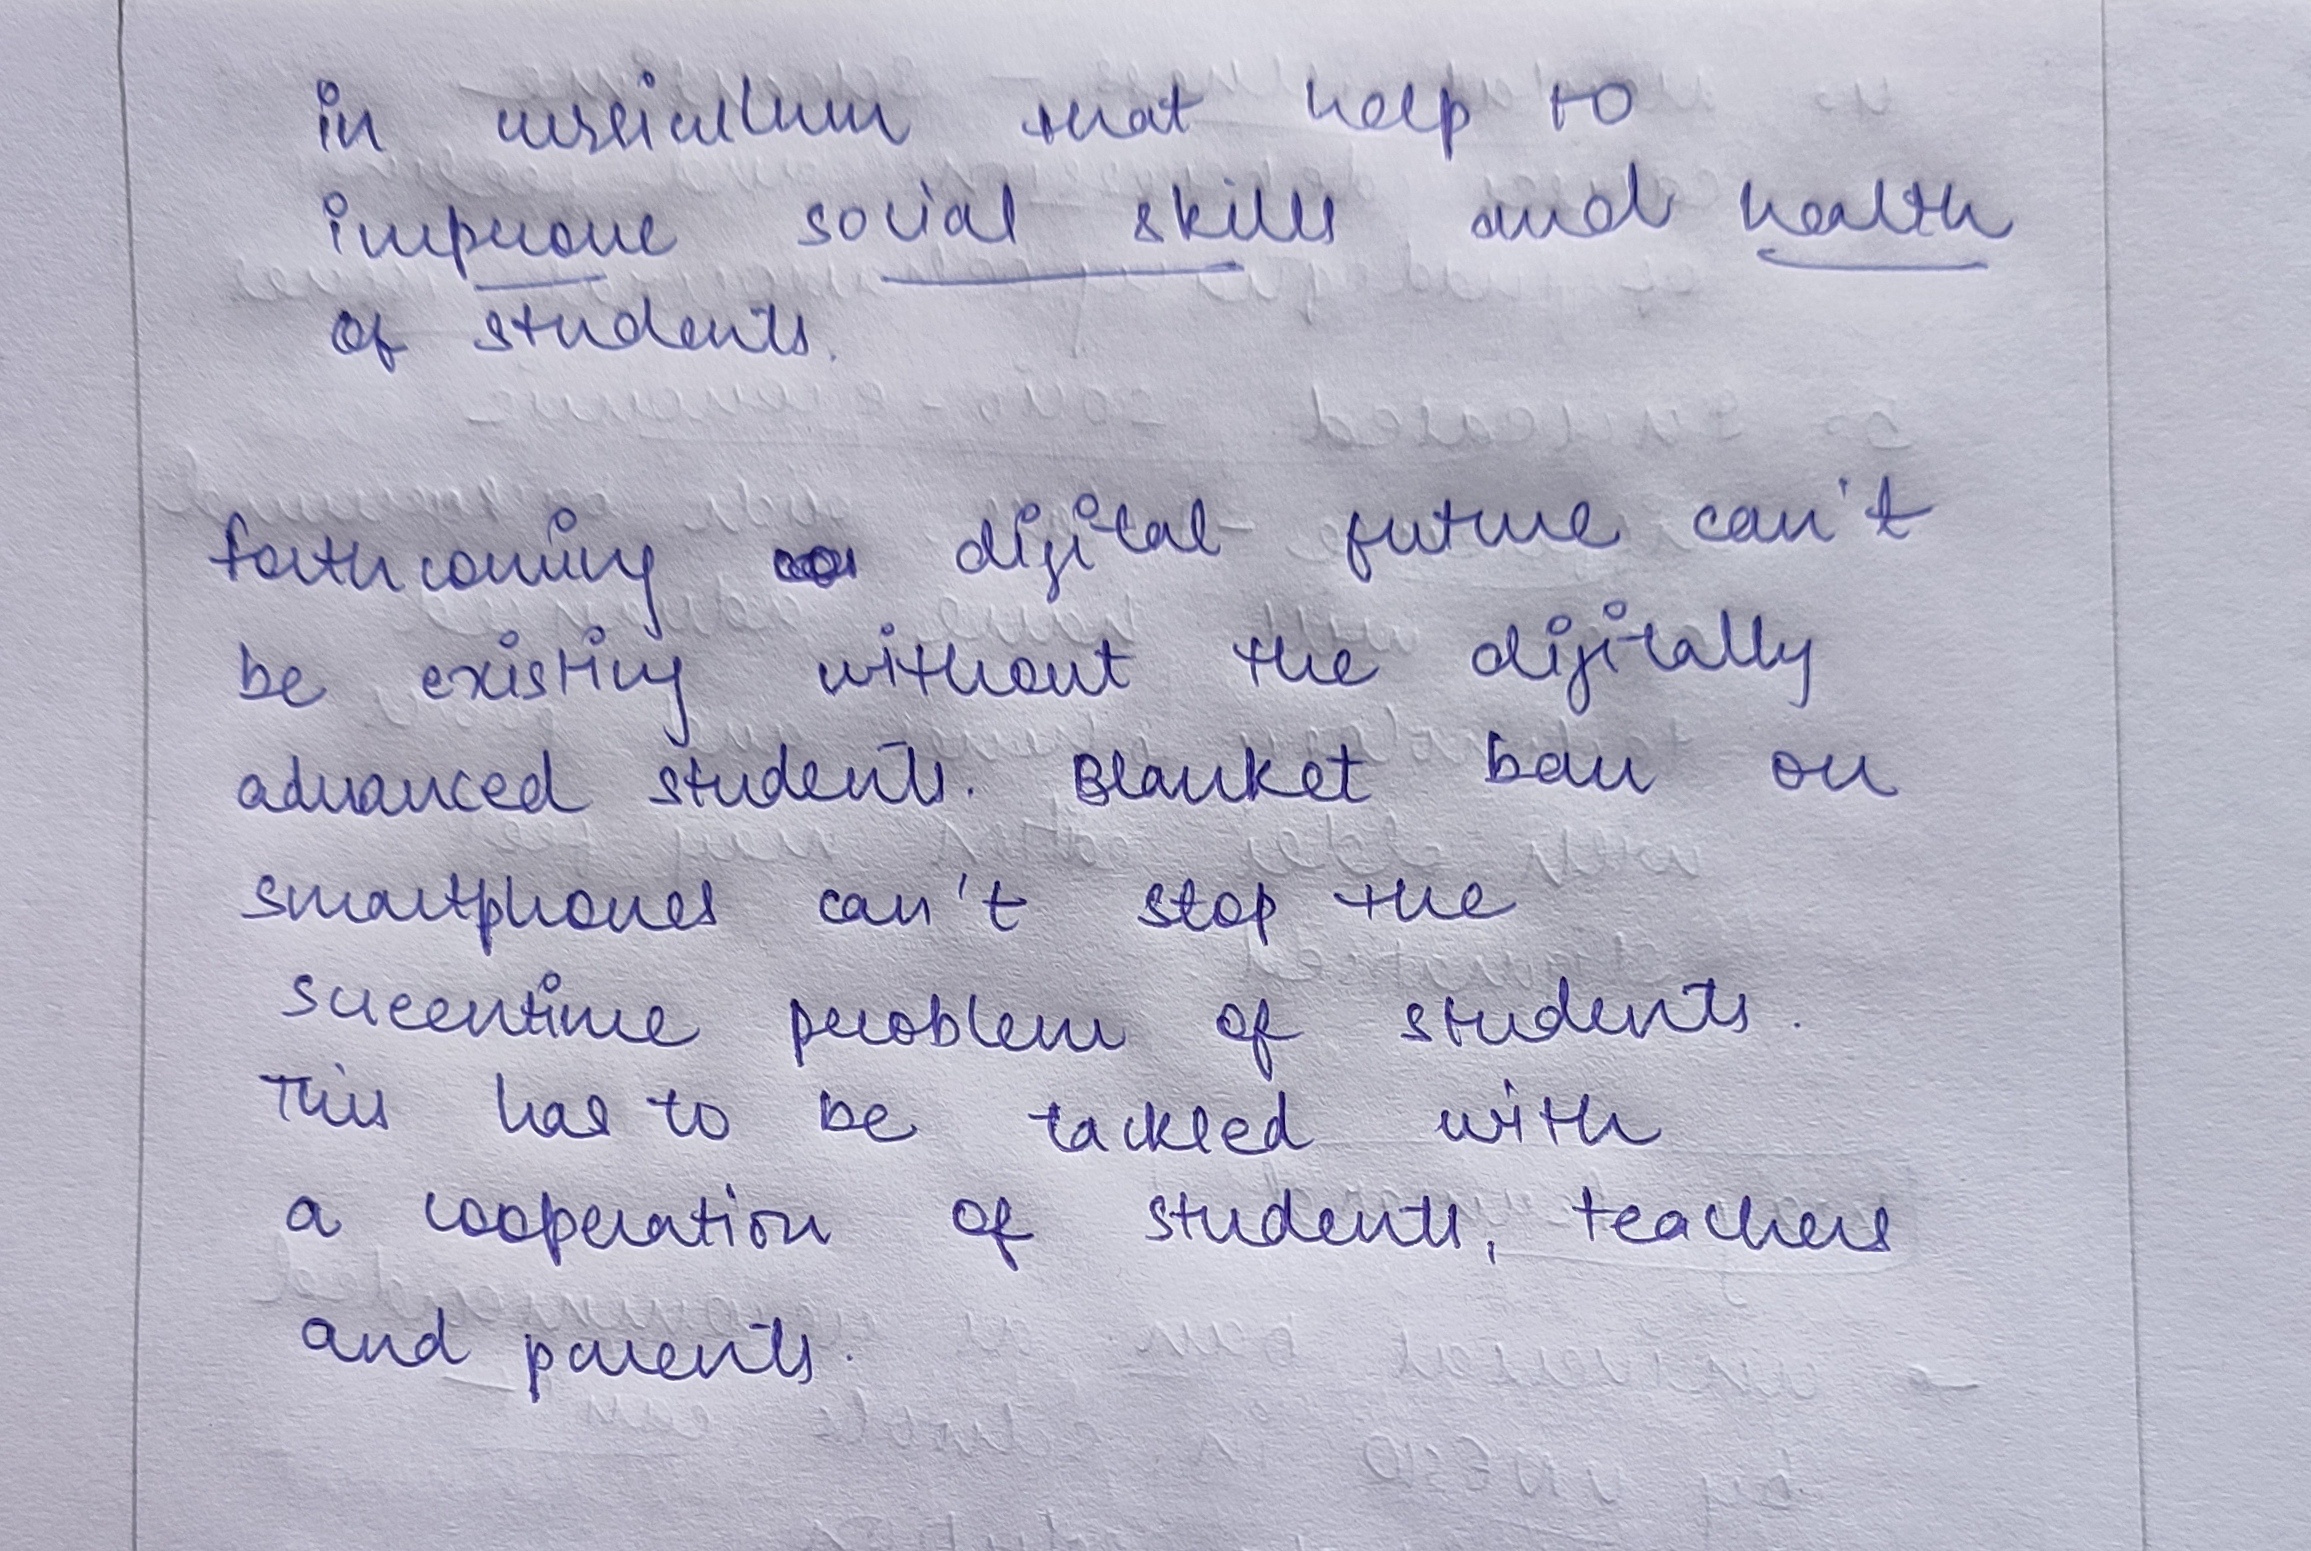 in curriculum that help to
improve social skills and health
of students.
forthcoming digital future can't
be existing without the digitally
advanced students. Blanket ban on
smartphones can't stop the
screentime problem of students.
This has to be tackled with
a cooperation of students, teachers
and parents.